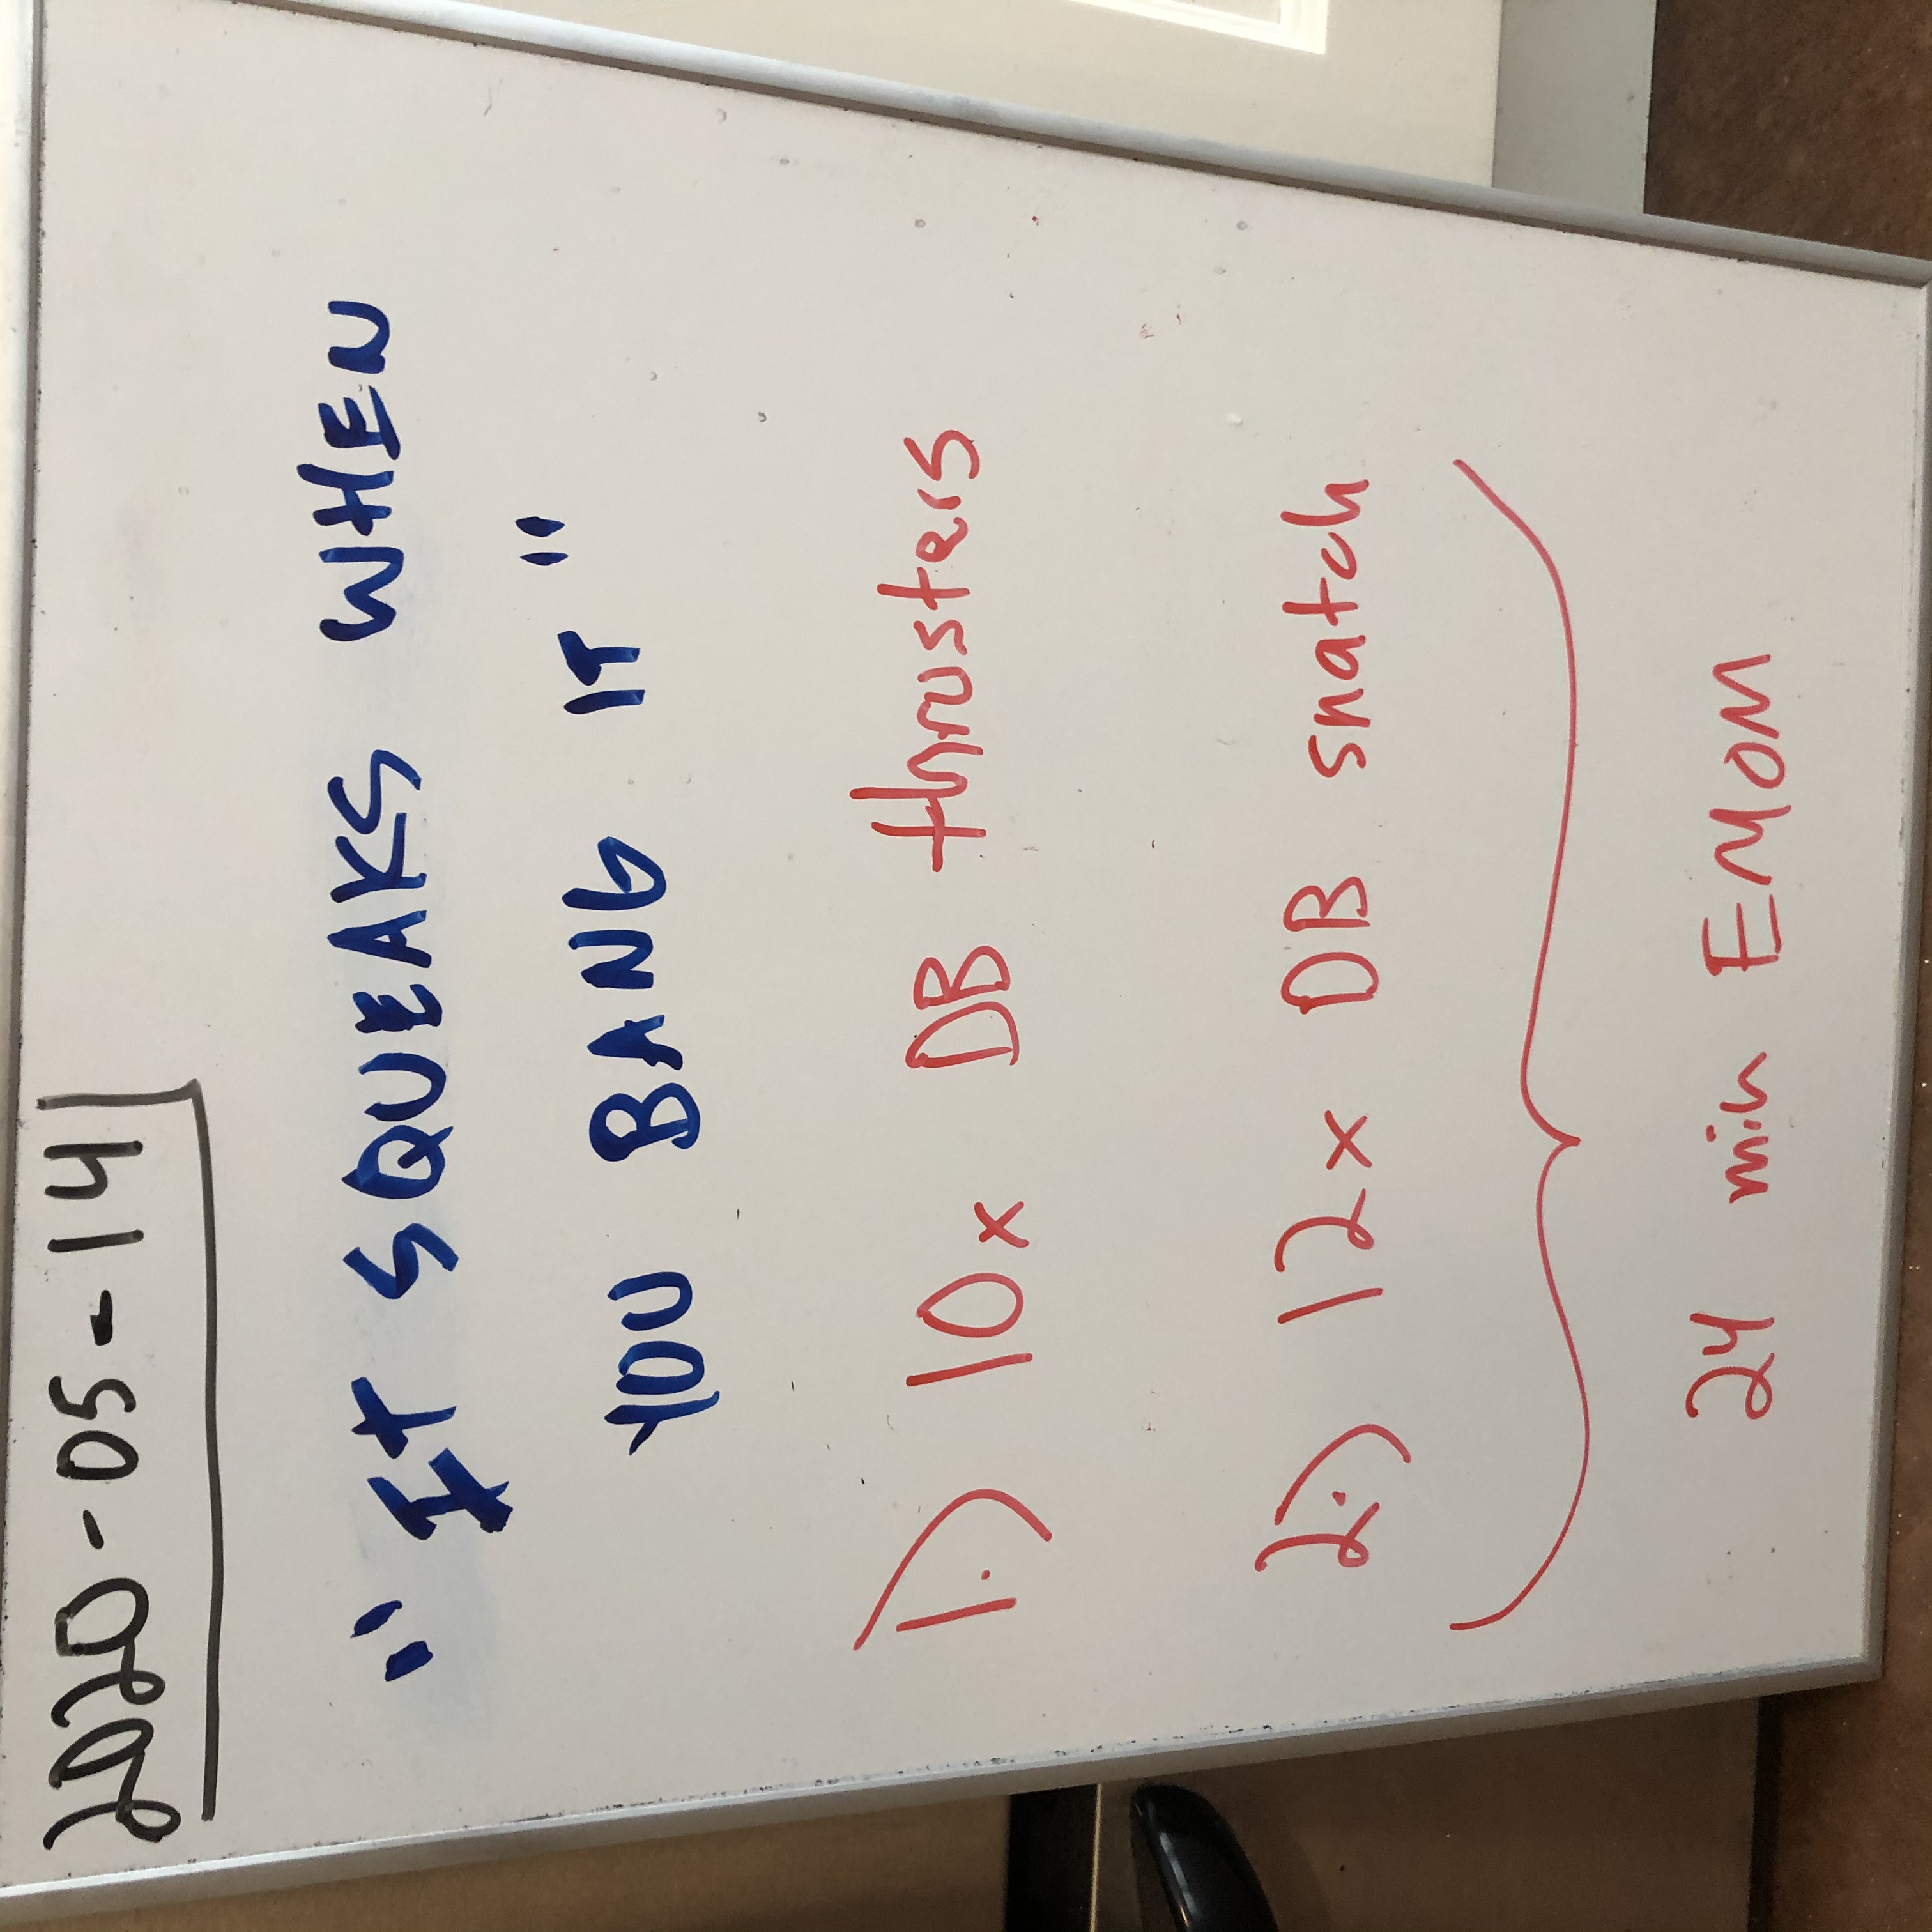 2020-05-14
"IT SQUEAKS WHEN
YOU BANG IT"
1.) 10x DB thrusters
2.) 12x DB snatch
24 min EMOM